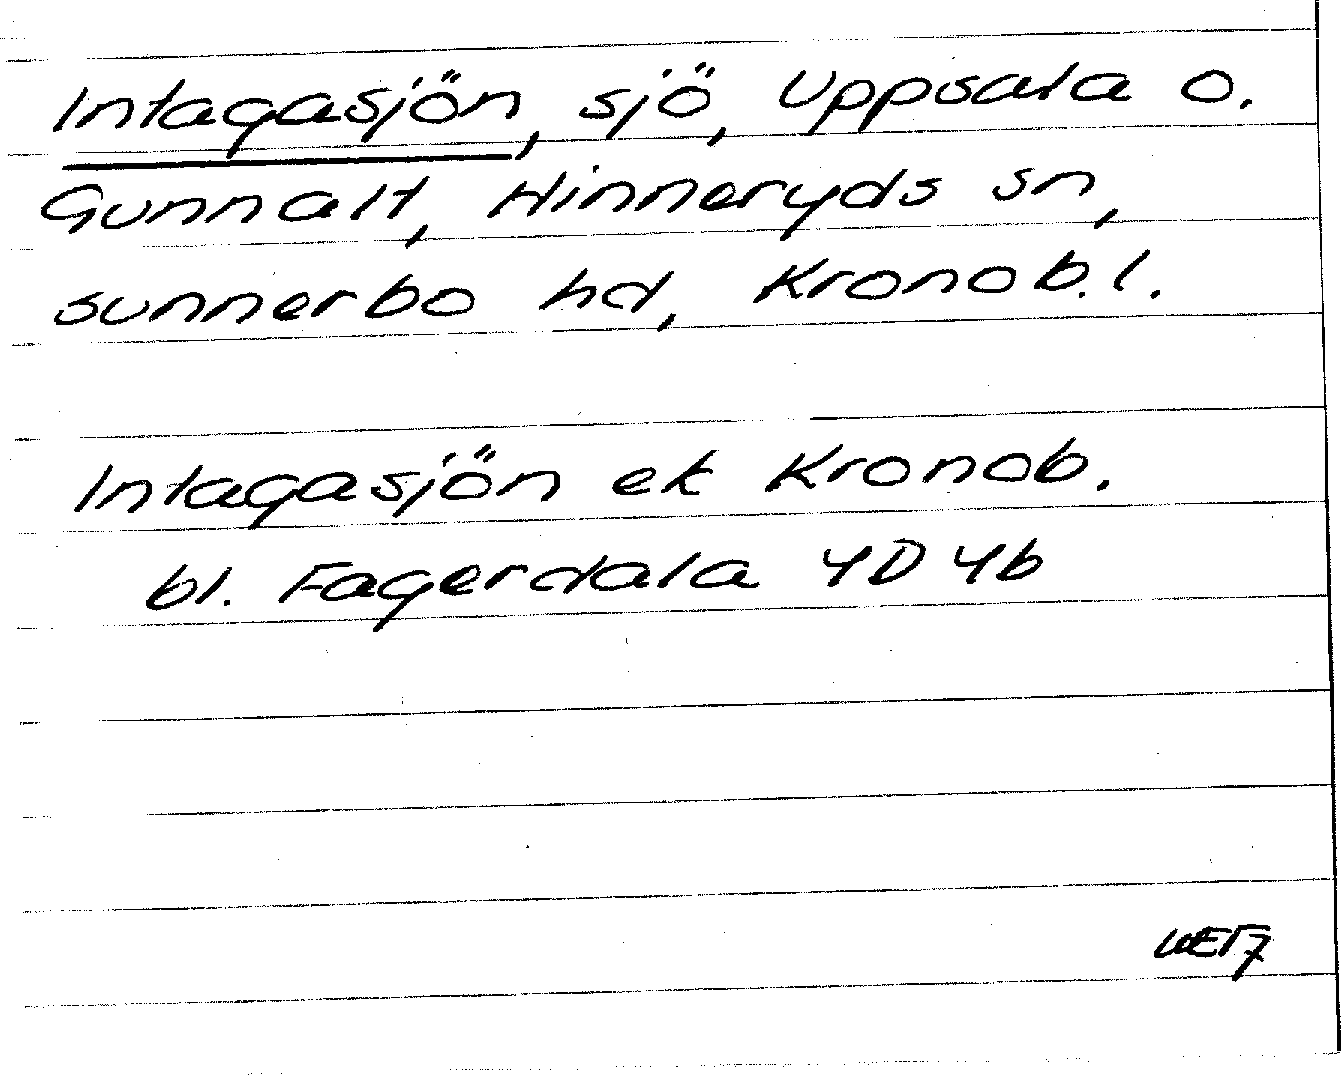 Intagasjön, sjö, Uppsala o.
Gunnalt, Hinneryds sn,
Sunnerbo hd, Kronob. l.
Intagasjön ek Kronob.
bl. Fagerdala 4D 4b